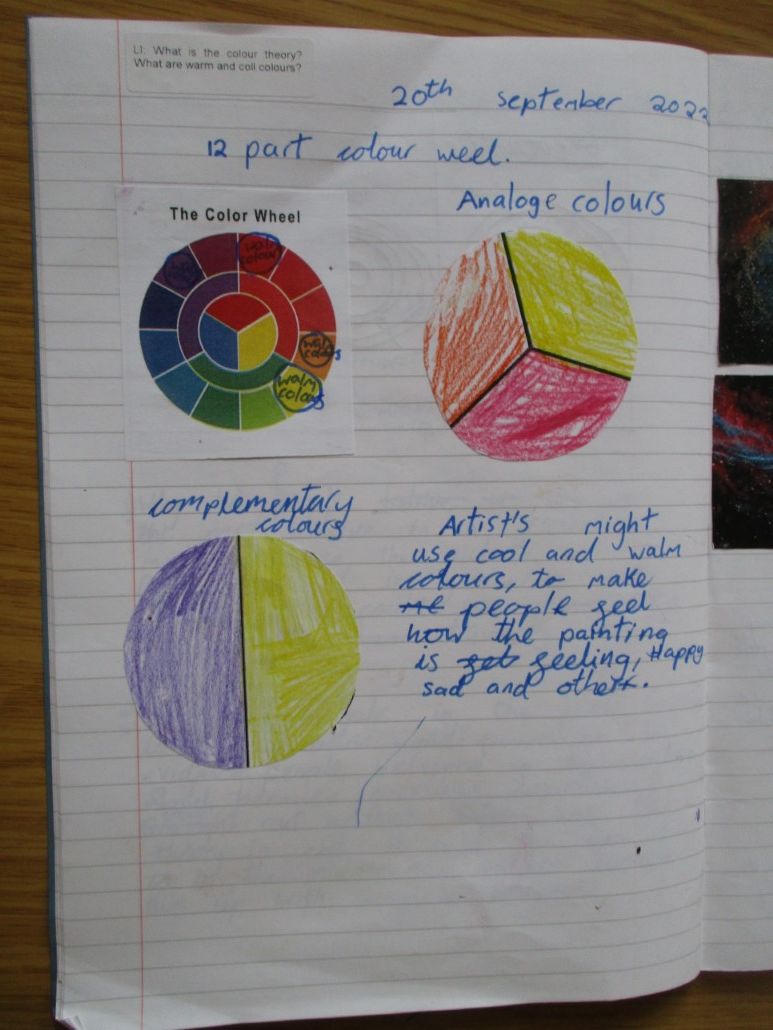 LI: What is the colour theory?
What are warm and coll colours?
20th september 2022
12 part colour weel.
Analoge colours
The Color Wheel
walm
colour
wal
colors
walm
colors
complementary
colours
Artist's might
use cool and walm
colours, to make
people feel
how the painting
is feeling, Happy
sad and other.